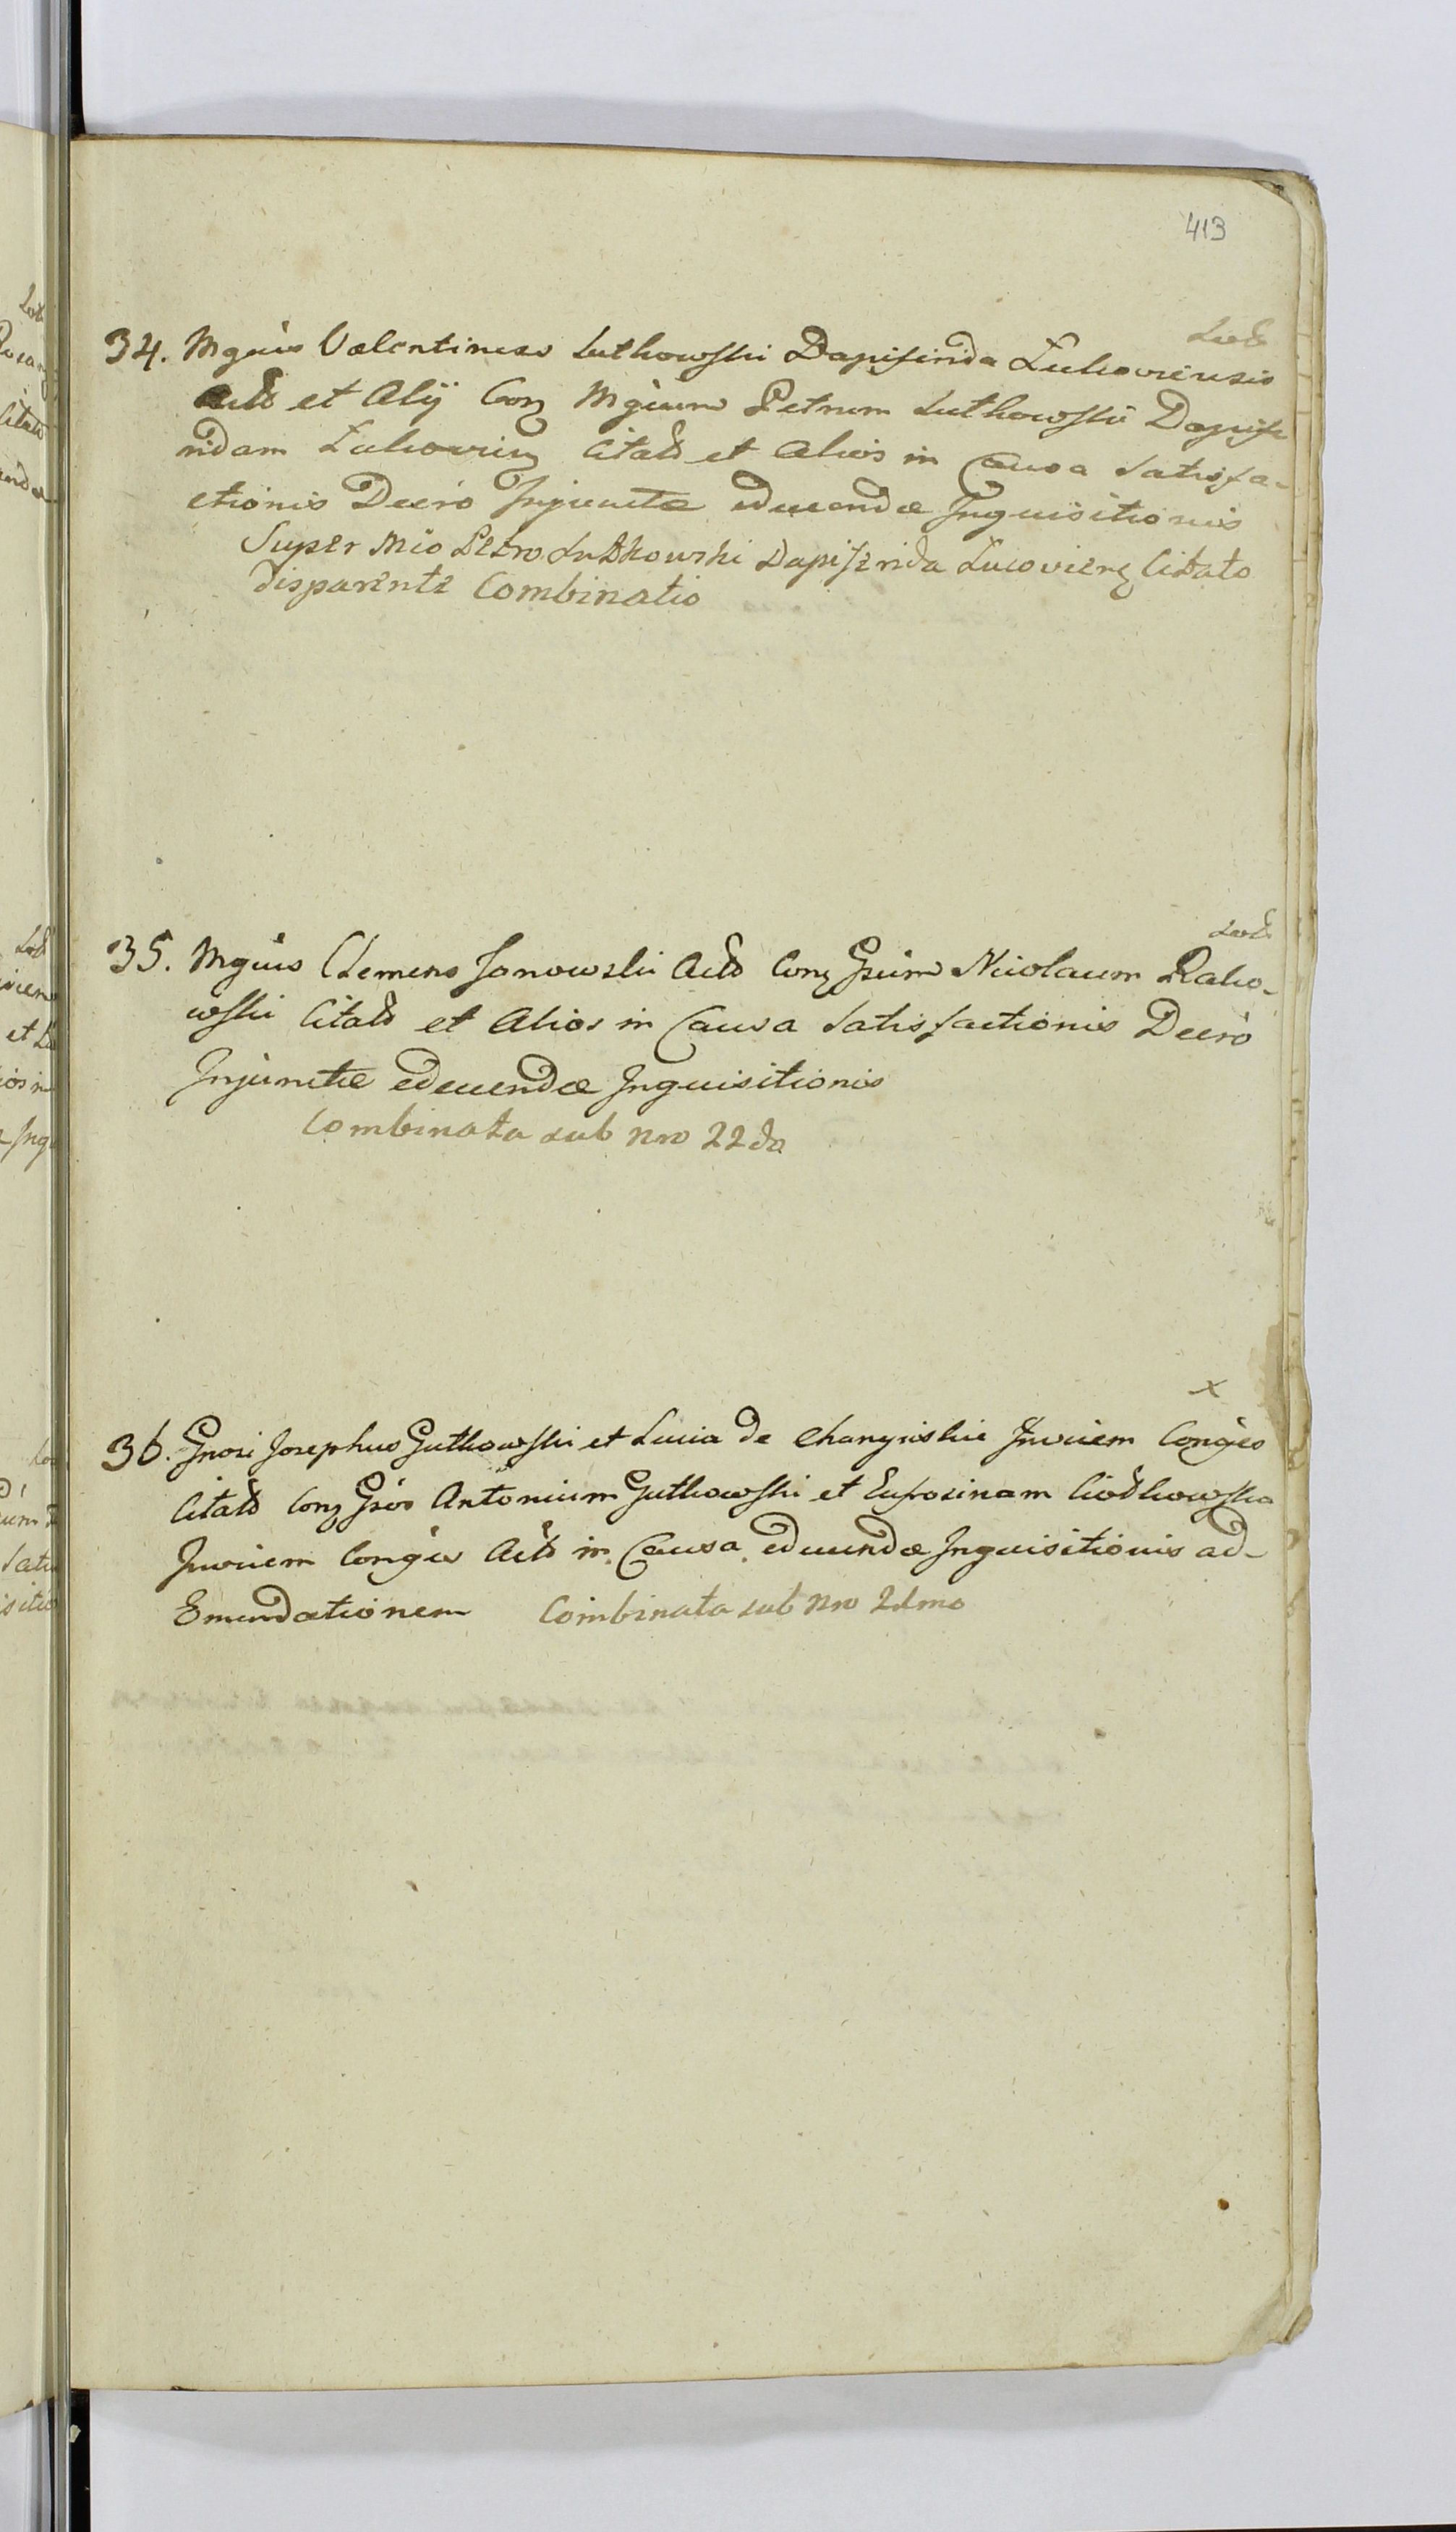 413
34. Mgnus Valentinus Lutkowski Dapiferida Lukoviensis
Actd et Alij Conq Mgnum Petrum Lutkowski Dapife
ridam Lukovienq Citatd et Alios in Causa Satisfa-
ctionis Decro Injunctæ educendæ Inquisitionis
Super Mco Petro Lutkowski Dapiferida Lucovienq Citato
disparente Combinatio
35. Mgnus Clemens Janowski Actd Conq Gsum Nicolaum Rako-
wski Citatd et Alios in Causa Satisfactionis Decro
Injunctæ educendæ Inquisitionis
Combinata sub nro 22da
x
36. Gnosi Josephus Gutkowski et Lucia de Invicem Conges
Citatd Conq Gsos Antonium Gutkowski et Eufrosinam
Invicem Conges Actd in Causa educendæ Inquisitionis ad-
Emendationem Combinata sub nro